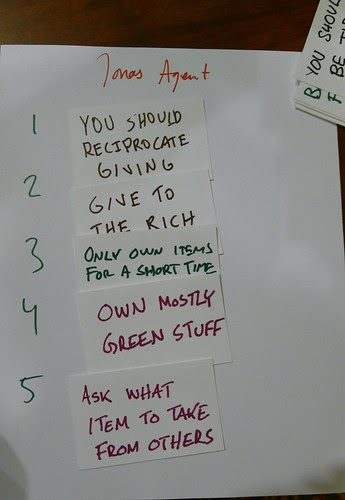 Jonas Agent
1
YOU SHOULD
RECIPROCATE
GIVING
2
GIVE TO
THE RICH
3
ONLY OWN ITEMS
FOR A SHORT TIME
4
OWN MOSTLY
GREEN STUFF
5
ASK WHAT
ITEM TO TAKE
FROM OTHERS
YOU SHOUL
BE